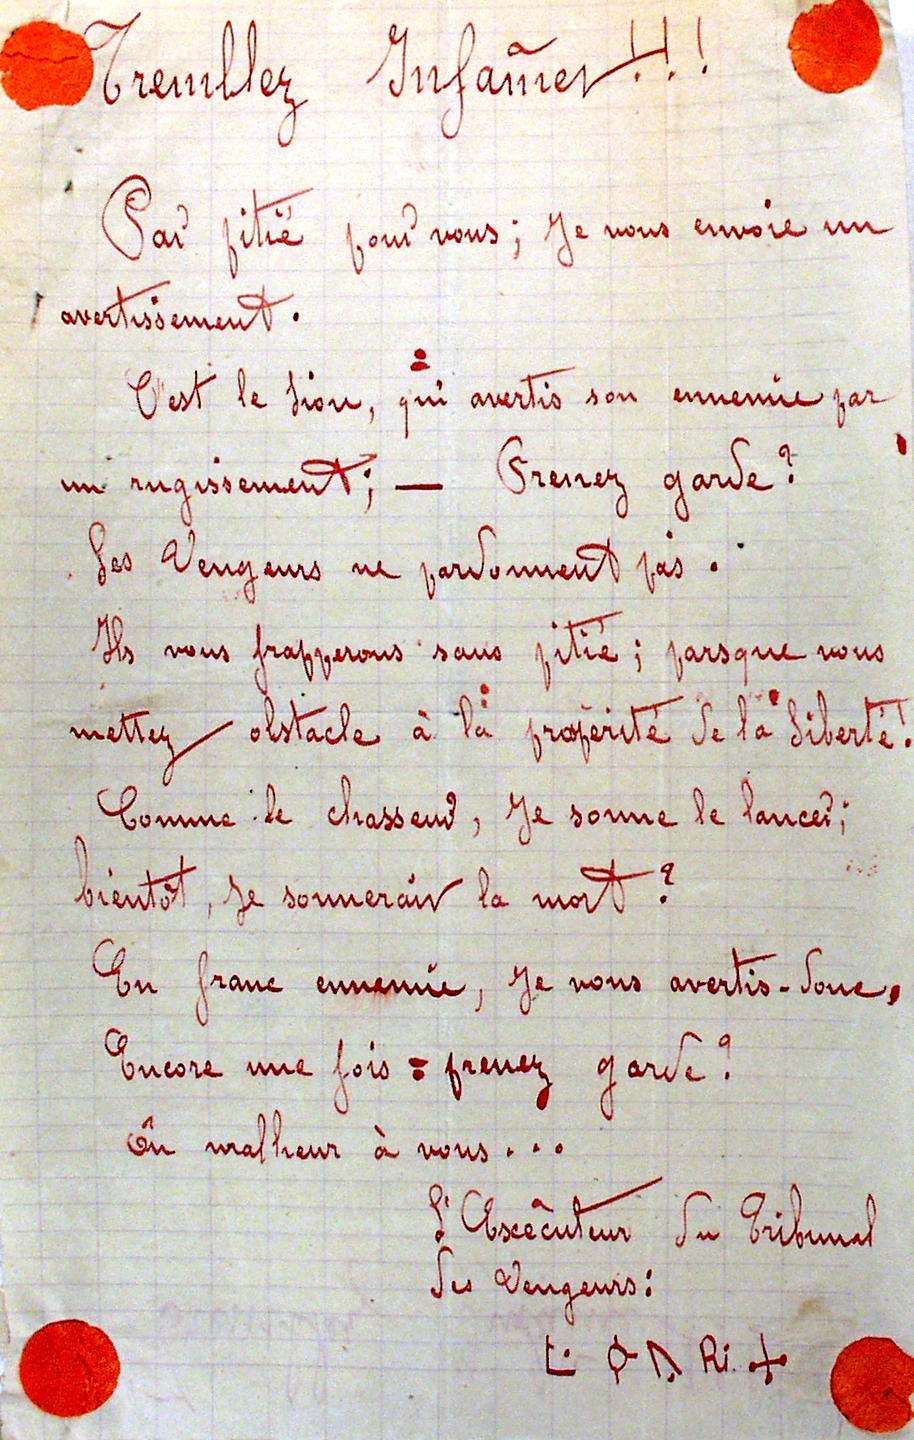 Tremblez Infâmes!!!
Par pitié pour vous; Je vous envoie un
avertissement.
C'est le Lion, qui avertis son ennemie par
un rugissement; — Prenez garde?
Les Vengeurs ne pardonnent pas.
Ils vous frapperons sans pitié; parsque vous
mettez obstacle à la propérité de la Liberté!
Comme le chasseur, Je sonne le lancer;
bientôt, Je sonnerair la mort?
En franc ennemie, Je vous avertis-donc,
Encore une fois = prenez garde?
Ôu malheur à vous...
L'Exècuteur du Tribunal
des Vengeurs: